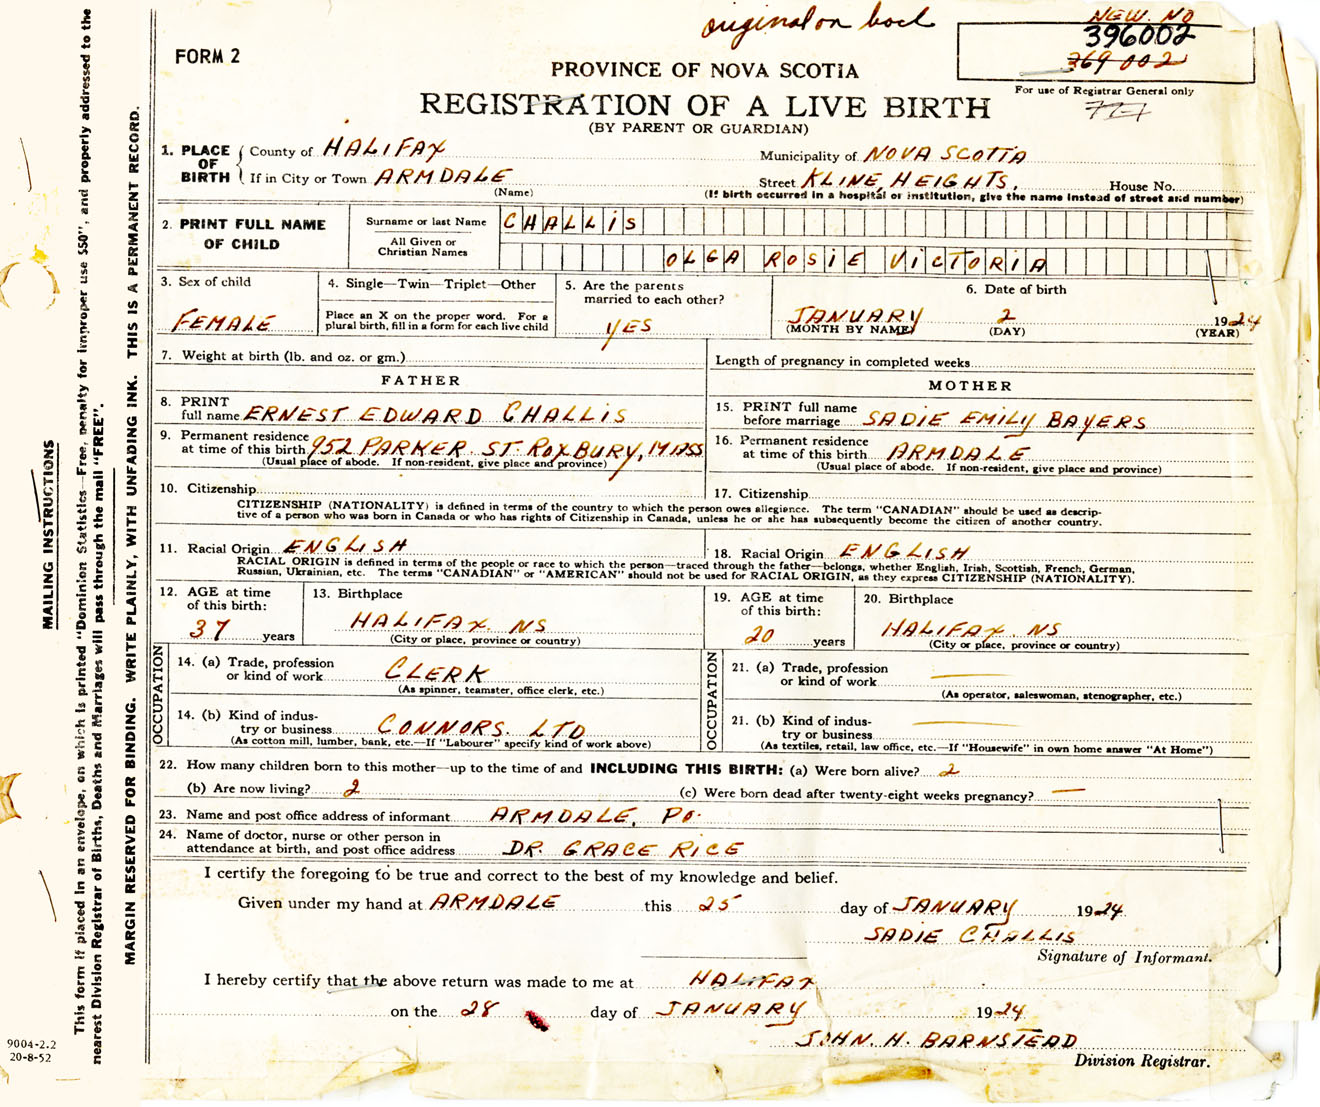 original on back
NEW. NO
396002
369 002
FORM 2
PROVINCE OF NOVA SCOTIA
For use of Registrar General only
REGISTRATION OF A LIVE BIRTH
(BY PARENT OR GUARDIAN)
1. PLACE OF BIRTH County of HALIFAX Municipality of NOVA SCOTIA
If in City or Town ARMDALE Street KLINE HEIGHTS, House No.
(Name) (If birth occurred in a hospital or institution, give the name instead of street and number)
2. PRINT FULL NAME OF CHILD Surname or last Name CHALLIS
All Given or Christian Names OLGA ROSIE VICTORIA
3. Sex of child 4. Single—Twin—Triplet—Other 5. Are the parents married to each other? 6. Date of birth
FEMALE Place an X on the proper word. For a plural birth, fill in a form for each live child YES JANUARY 2 1924
(MONTH BY NAME) (DAY) (YEAR)
7. Weight at birth (lb. and oz. or gm.) Length of pregnancy in completed weeks
FATHER MOTHER
8. PRINT full name ERNEST EDWARD CHALLIS 15. PRINT full name before marriage SADIE EMILY BAYERS
9. Permanent residence at time of this birth 952 PARKER ST ROXBURY, MASS 16. Permanent residence at time of this birth ARMDALE
(Usual place of abode. If non-resident, give place and province) (Usual place of abode. If non-resident, give place and province)
10. Citizenship 17. Citizenship
CITIZENSHIP (NATIONALITY) is defined in terms of the country to which the person owes allegiance. The term "CANADIAN" should be used as descrip-
tive of a person who was born in Canada or who has rights of Citizenship in Canada, unless he or she has subsequently become the citizen of another country.
11. Racial Origin ENGLISH 18. Racial Origin ENGLISH
RACIAL ORIGIN is defined in terms of the people or race to which the person—traced through the father—belongs, whether English, Irish, Scottish, French, German,
Russian, Ukrainian, etc. The terms "CANADIAN" or "AMERICAN" should not be used for RACIAL ORIGIN, as they express CITIZENSHIP (NATIONALITY).
12. AGE at time of this birth: 13. Birthplace 19. AGE at time of this birth: 20. Birthplace
37 years HALIFAX NS 20 years HALIFAX NS
(City or place, province or country) (City or place, province or country)
OCCUPATION
14. (a) Trade, profession or kind of work CLERK
(As spinner, teamster, office clerk, etc.)
14. (b) Kind of indus-
try or business CONNORS. LTD
(As cotton mill, lumber, bank, etc.—If "Labourer" specify kind of work above)
OCCUPATION
21. (a) Trade, profession or kind of work —
(As operator, saleswoman, stenographer, etc.)
21. (b) Kind of indus-
try or business —
(As textiles, retail, law office, etc.—If "Housewife" in own home answer "At Home")
22. How many children born to this mother—up to the time of and INCLUDING THIS BIRTH: (a) Were born alive? 2
(b) Are now living? 2 (c) Were born dead after twenty-eight weeks pregnancy? —
23. Name and post office address of informant ARMDALE, PO.
24. Name of doctor, nurse or other person in
attendance at birth, and post office address DR. GRACE RICE
I certify the foregoing to be true and correct to the best of my knowledge and belief.
Given under my hand at ARMDALE this 25 day of JANUARY 1924
SADIE CHALLIS
Signature of Informant.
I hereby certify that the above return was made to me at HALIFAX
on the 28 day of JANUARY 1924
JOHN. H. BARNSTEAD
Division Registrar.
MARGIN RESERVED FOR BINDING. WRITE PLAINLY, WITH UNFADING INK. THIS IS A PERMANENT RECORD.
MAILING INSTRUCTIONS
This form if placed in an envelope, on which is printed "Dominion Statistics—Free, penalty for improper use $50", and properly addressed to the
nearest Division Registrar of Births, Deaths and Marriages will pass through the mail "FREE".
9004-2.2
20-8-52